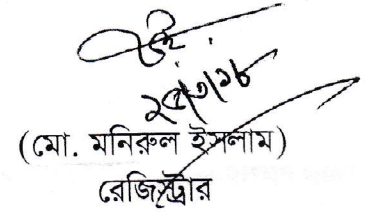 ২৫/৩/১৮
(মো. মনিরুল ইসলাম)
রেজিস্ট্রার